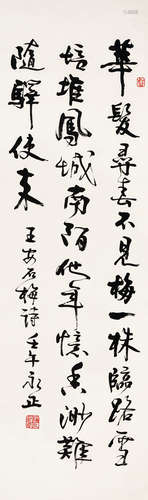 華髮尋春不見梅一株臨路雪
培堆鳳城南陌他年憶香渺難
隨驛使來
王安石梅詩壬午永正